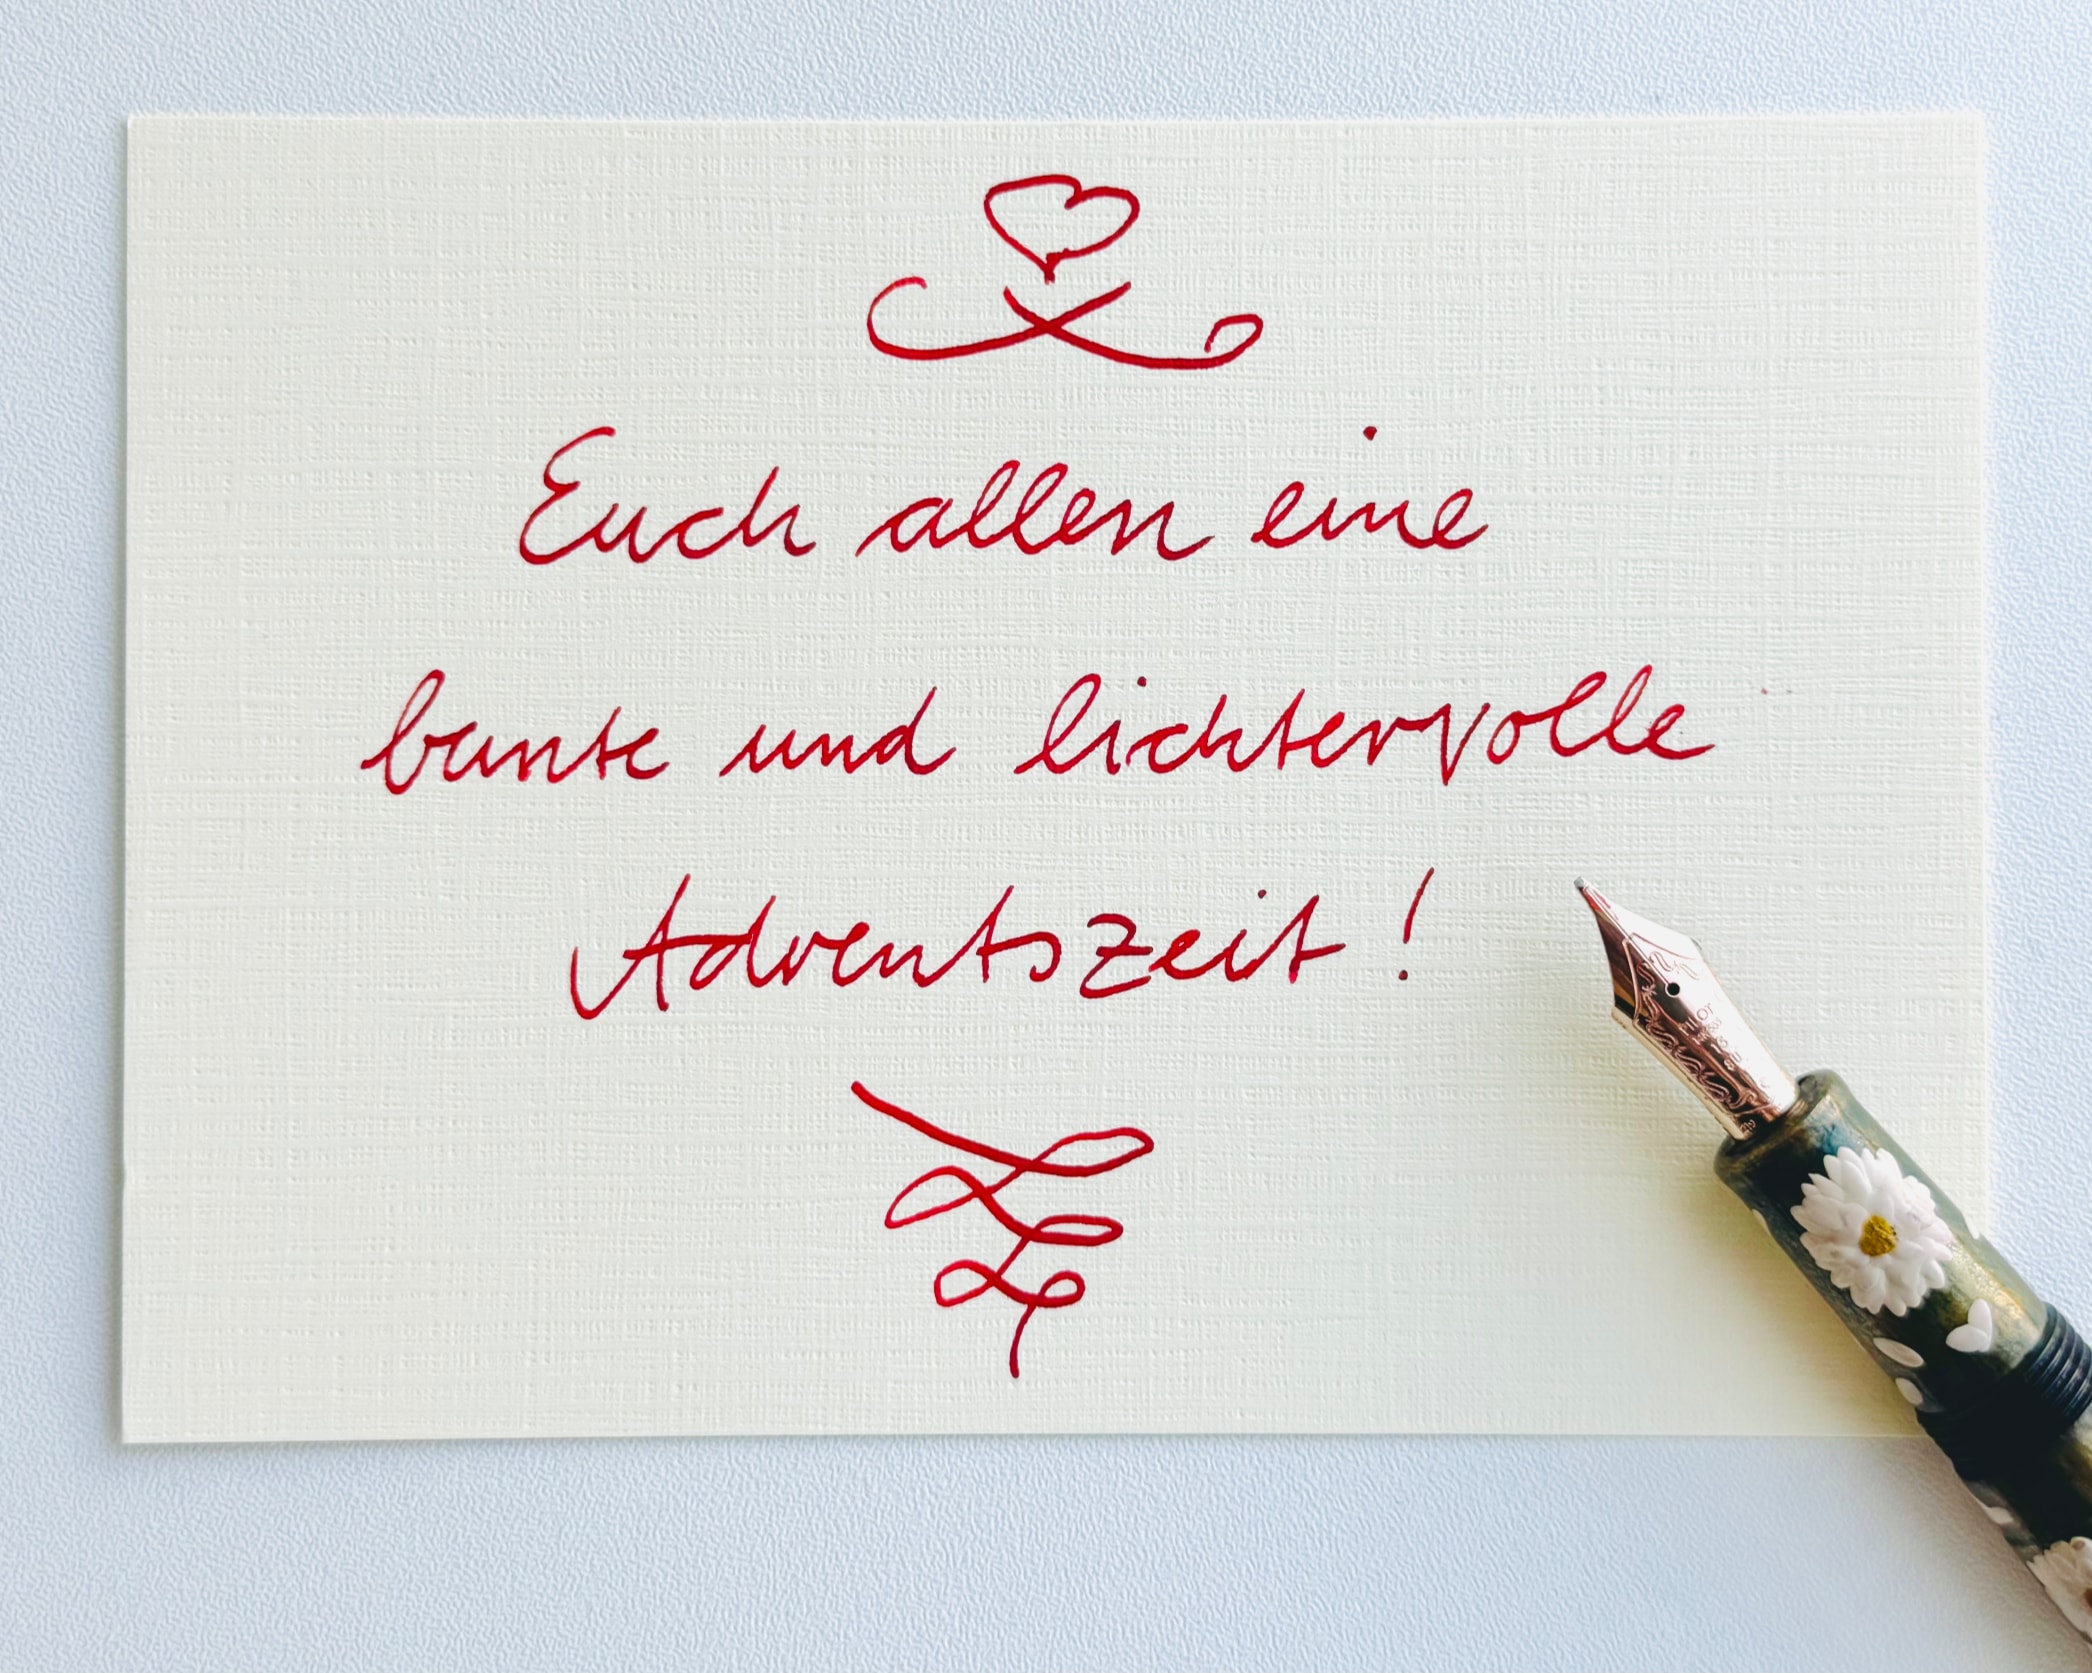 Euch allen eine
bunte und lichtervolle
Adventszeit!